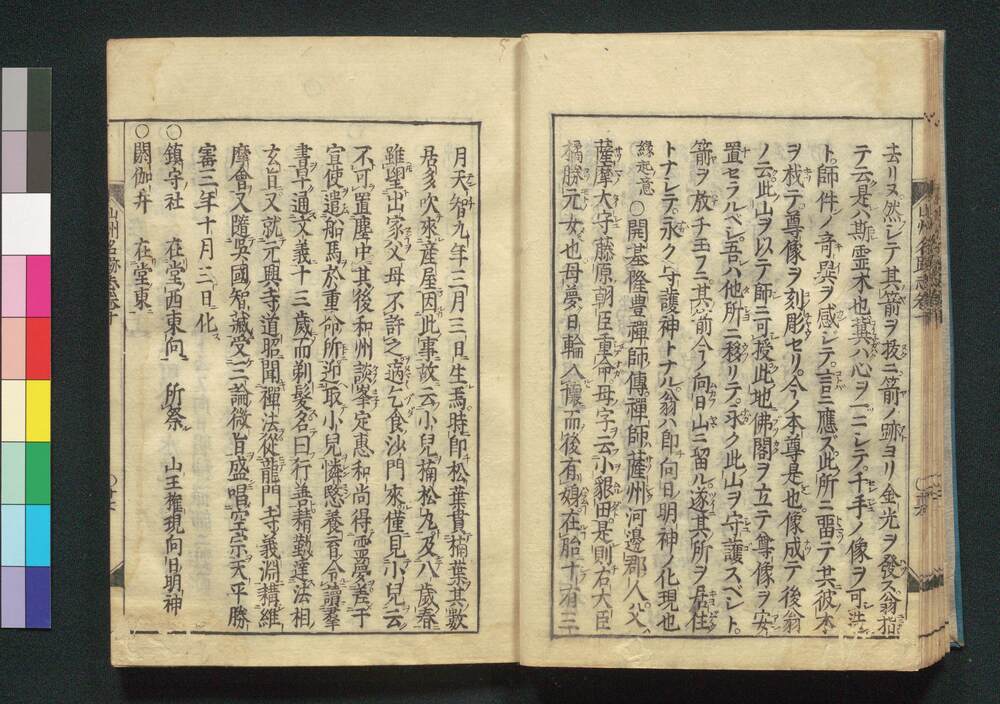 去リヌ然シテ其箭ヲ拔ニ箭ノ跡ヨリ金光ヲ發ス翁指
テ云是ハ斯霊木也冀ハ心ヲ一ニシテ千手ノ像ヲ可造
ト師件ノ奇異ヲ感シテ言ニ應ズ此所ニ畱テ其彼木
ヲ棧テ尊像ヲ刻彫セリ今ノ本尊是也像成テ後翁
ノ云此山ヲ以テ師ニ可授此地佛閣ヲ立テ尊像ヲ安
置セラルベシ吾ハ他所ニ移リテ永ク此山ヲ守護スベシト
箭ヲ放チ玉フニ其箭今ノ向日山ニ留ル遂其所ヲ居住
トナシテ永ク守護神トナル翁ハ即向日明神ノ化現也
緣起意○開基隆豊禪師傳禪師薩州河邊郡人父
薩摩大守藤原朝臣重命母字云小貌田是則右大臣
橘勝元女也母夢日輪入懷而後有娠在胎十有三
月天智九年三月三日生焉時印松葉貫楠葉其數
居多吹來産屋因此事故云小兒楠松丸及八歳春
雖望出家父母不許之適乞食沙門來僅見小兒云
不可置塵中其後和州談峯定惠和尚得霊夢差于
宣使遣船馬於重命所迎取小兒憐愍養育令讀羣
書早通文義十三歳而剃髮名曰行善精勤達法相
玄旨又就元興寺道昭聞禪法從龍門寺義淵精維
摩會又隨吳國智藏受三論微旨盛唱空宗天平勝
審三年十月三日化
○鎮守社 在堂西東向 所祭 山王權現向日明神
○閼伽井 在堂東
山州名跡志卷十